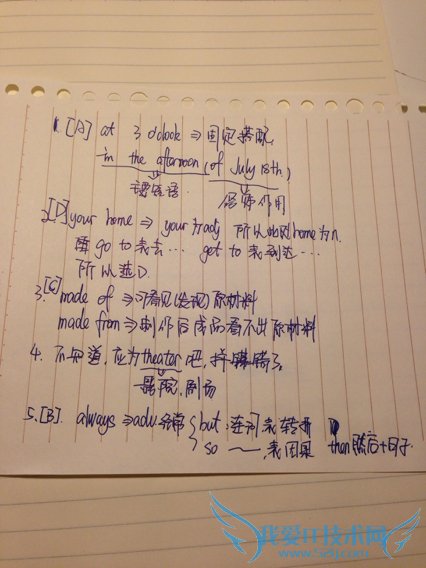 1. [A] at 3 o'clock ⇒ 固定搭配
in the afternoon (of July 18th)
修饰作用
2. [D] your home ⇒ your为adj 所以此时home为n.
go to 表去… get to 表到达…
所以选D.
3. [C] made of ⇒ 可看见(发现)原材料
made from ⇒ 制作后成品看不出原材料
4. 不知道, 应为theater吧,
剧院, 剧场
5. [B]. always ⇒ adv 经常 { but 连词 表转折
so —— 表因果 than 然后+句子
我爱IT技术网
www.52ij.com